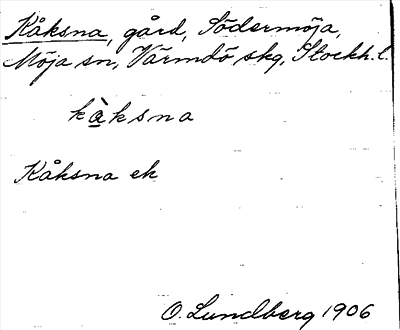 Kåksna, gård, Södermöja,
Möja sn, Värmdö skg, Stockh. l.
kàksna
Kåksna ek
O. Lundberg 1906